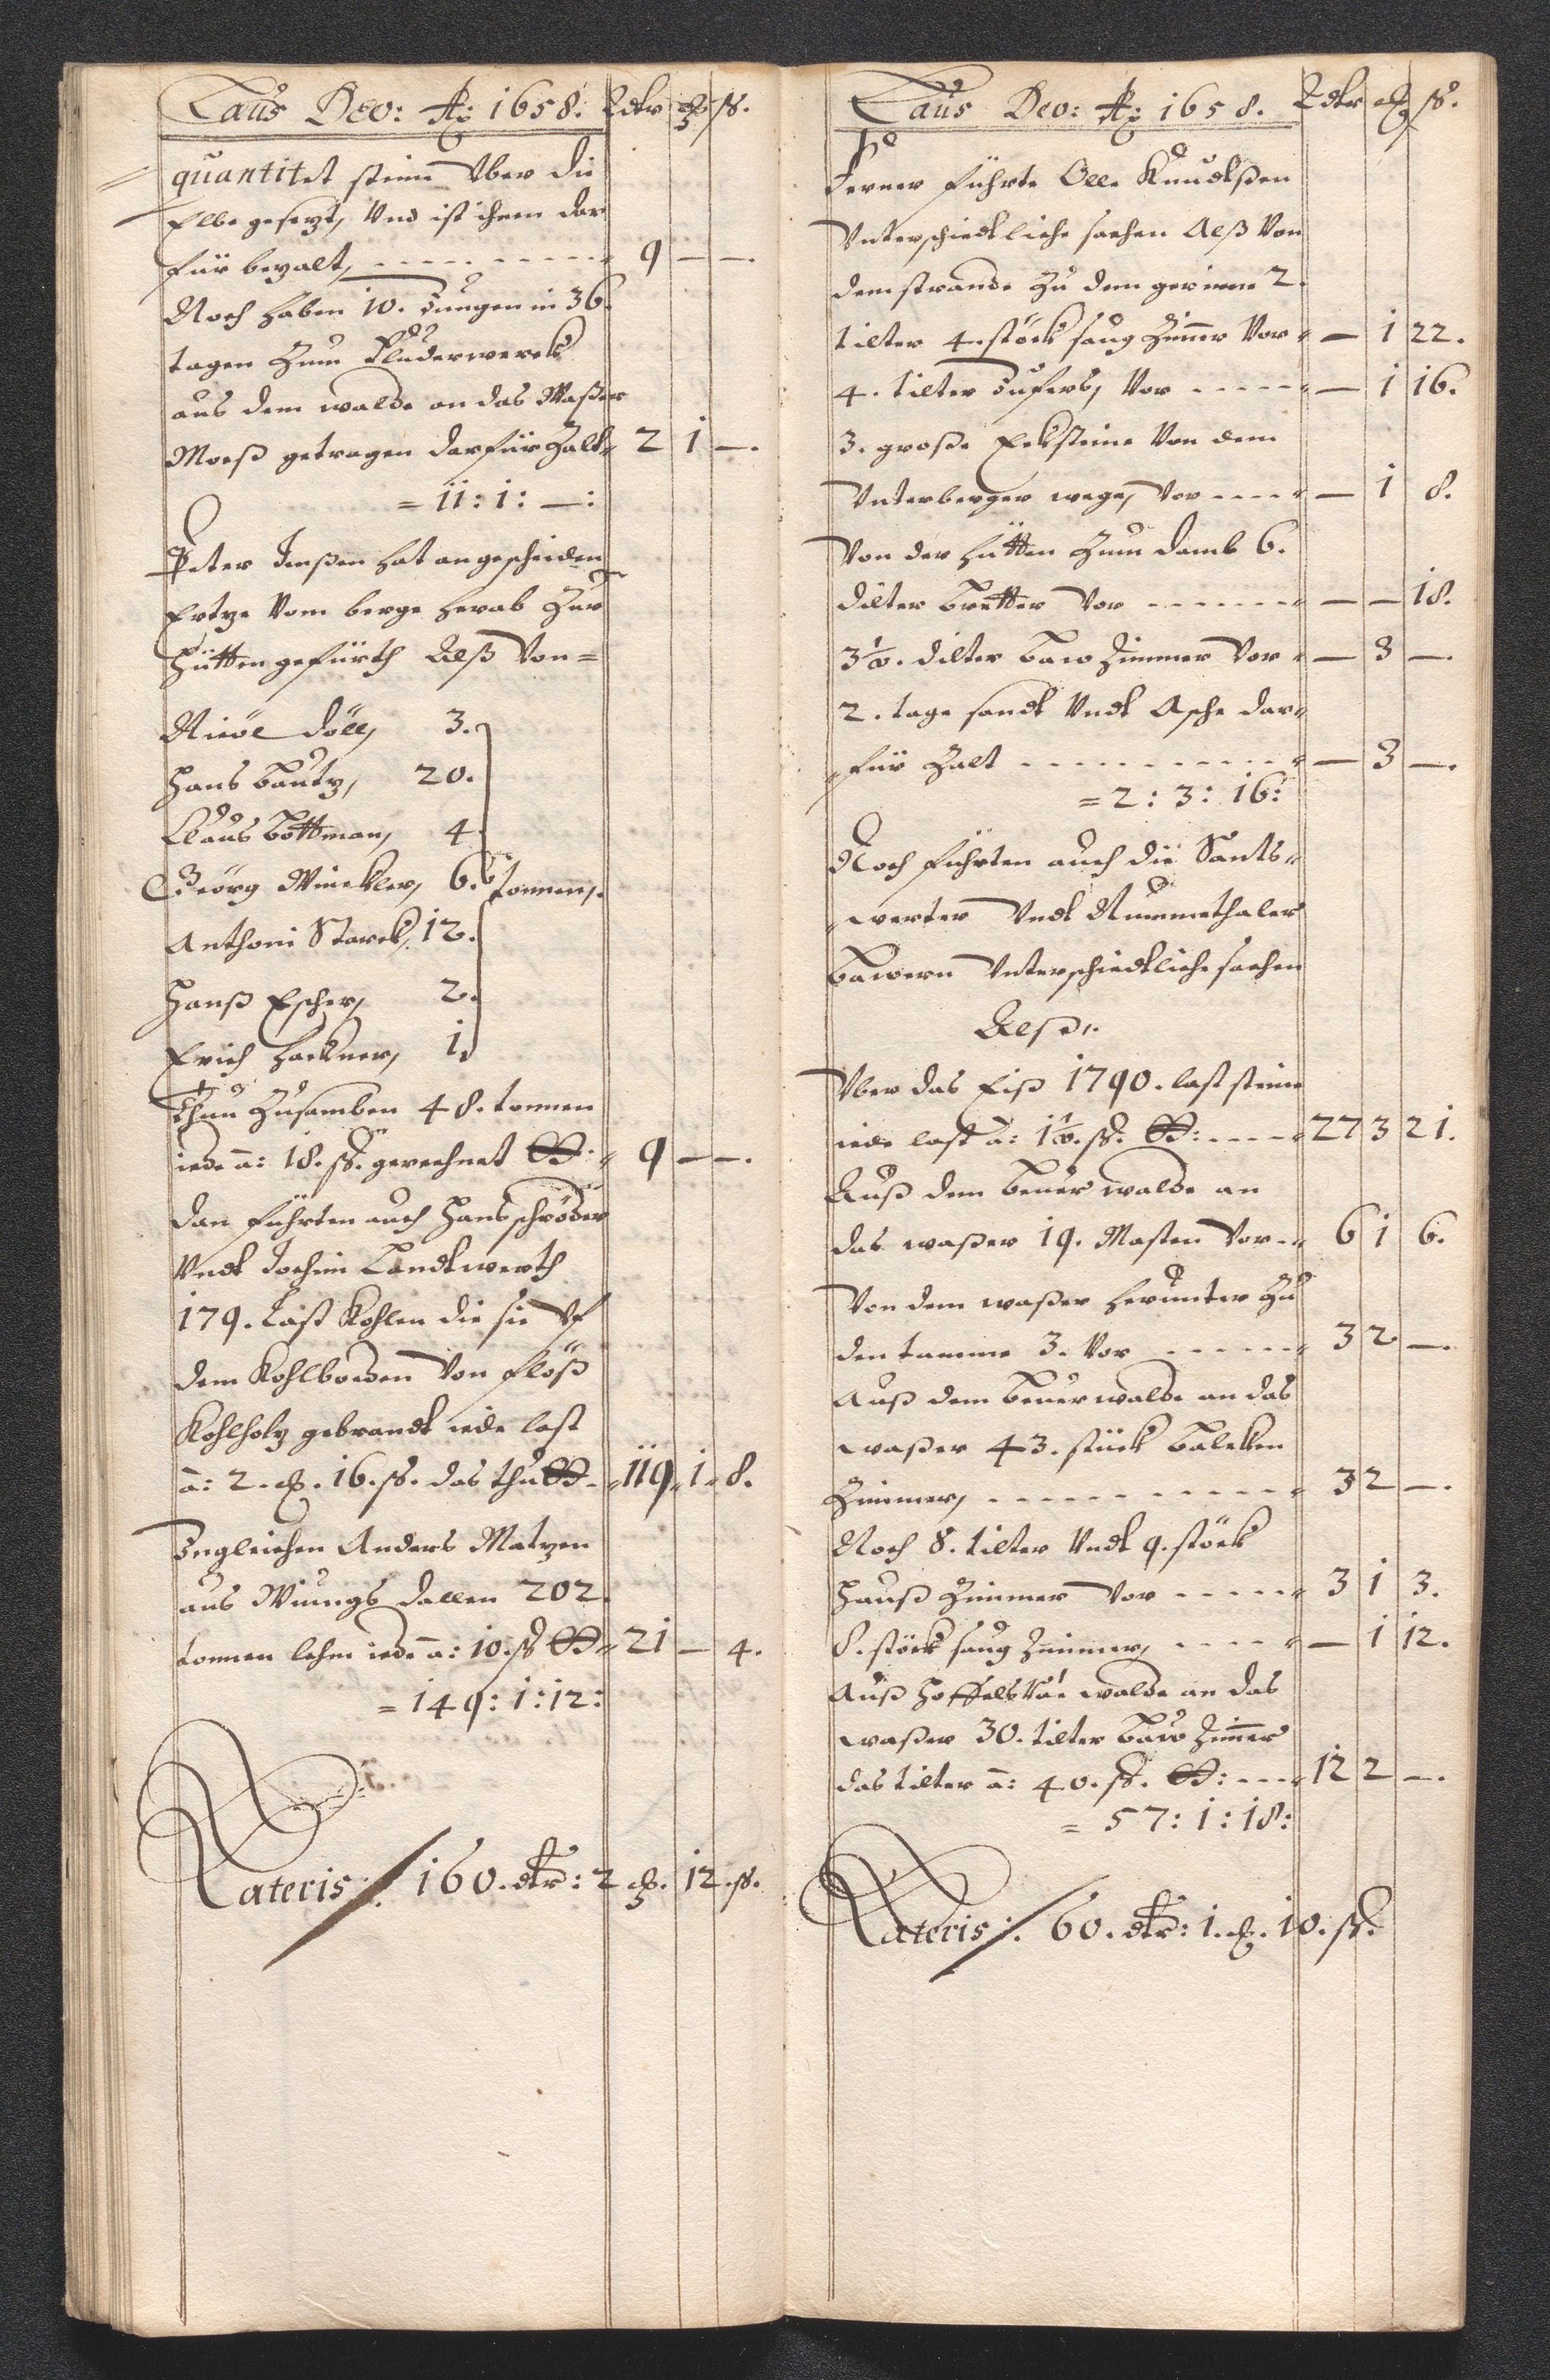 Laus Deo: Aō: 1658. Rdtr ort ß.
quantitet steine Vber die
Elbe gesezt, Vnd ist ihnen dar
für bezalt, - - - - - - - - - 9 — —.
Noch haben 10. Jungen in 36.
tagen Zum Fluderwerck
aus dem walde an das Waßer
Moeß getragen darfür Zalt 2 1 —.
= 11: 1: —:
Peter Jenßen hat angescheiden
Ertze Vom berge herab Zur
Hütten gefürth Alß Von =
Niröl döll, 3.
Hans Bautz, 20.
Claus Bottman, 4.
Geörg Winckler, 6. tonnen,.
Anthoni Starck, 12.
Hanß Escher, 2.
Erich Hackner, 1.
Thun Zusamben 48. tonnen
iede a: 18. ß. gerechnet 9 — —.
Dan führten auch Hans schröder
Vndt Jochim Landtwerth
179. Last Kohlen die sie Vf
dem Kohlboden Von flöß
Kohlholz gebrandt iede last
a: 2. ort. 16. ß. das thut 119 1 8.
Ingleichen Anders Matzen
aus Wiungs dallen 202.
tonnen lehm iede a: 10. ß 21 — 4.
= 149: 1: 12:
Lateris /. 160. dtr: 2 ort. 12. ß.
Laus Deo: Aō: 1658. Rdtr ort ß.
Ferner führte Olle Knudtßen
Vnterschiedtliche sachen Alß Von
dem strande Zu dem gerinne 2.
tilter 4. stöck saug Zimer Vor — 1 22.
4. tilter Jufers, Vor - - - - - — 1 16.
3. große Ecksteine Von dem
Vnterberger wege, Vor - - - - — 1 8.
Von der Hütten Zum damb 6.
dilter bretter Vor - - - - - - - — — 18.
3½. dilter baw Zimmer Vor — 3 —.
2. tage sandt Vndt Asche dar
für Zalt - - - - - - - - - - - — 3 —.
= 2: 3: 16:
Noch führten auch die Sants
werter Vndt Nummethaler
bawern Vnterschiedtliche sachen
Alß,.
Vber das Eiß 1790. last steine
iede last a: 1½. ß. - - - - 27 3 21.
Auß dem beuer walde an
das waßer 19. Masten Vor - - 6 1 6.
Von dem waßer herunter Zu
den tamme 3. Vor - - - - - - 3 2 —.
Auß dem beuer walde an das
waßer 43. stück balcken
Zimmer, - - - - - - - - - - 3 2 —.
Noch 8. tilter Vndt 9. stöck
Hauß Zimmer Vor - - - - - 3 1 3.
8. stöck saug Zimmer, - - - - — 1 12.
Auß walde an das
waßer 30. tilter baw Zimer
das tilter a: 40. ß. - - - 12 2 —.
= 57: 1: 18:
Lateris /. 60. dtr: 1. ort. 10. ß.